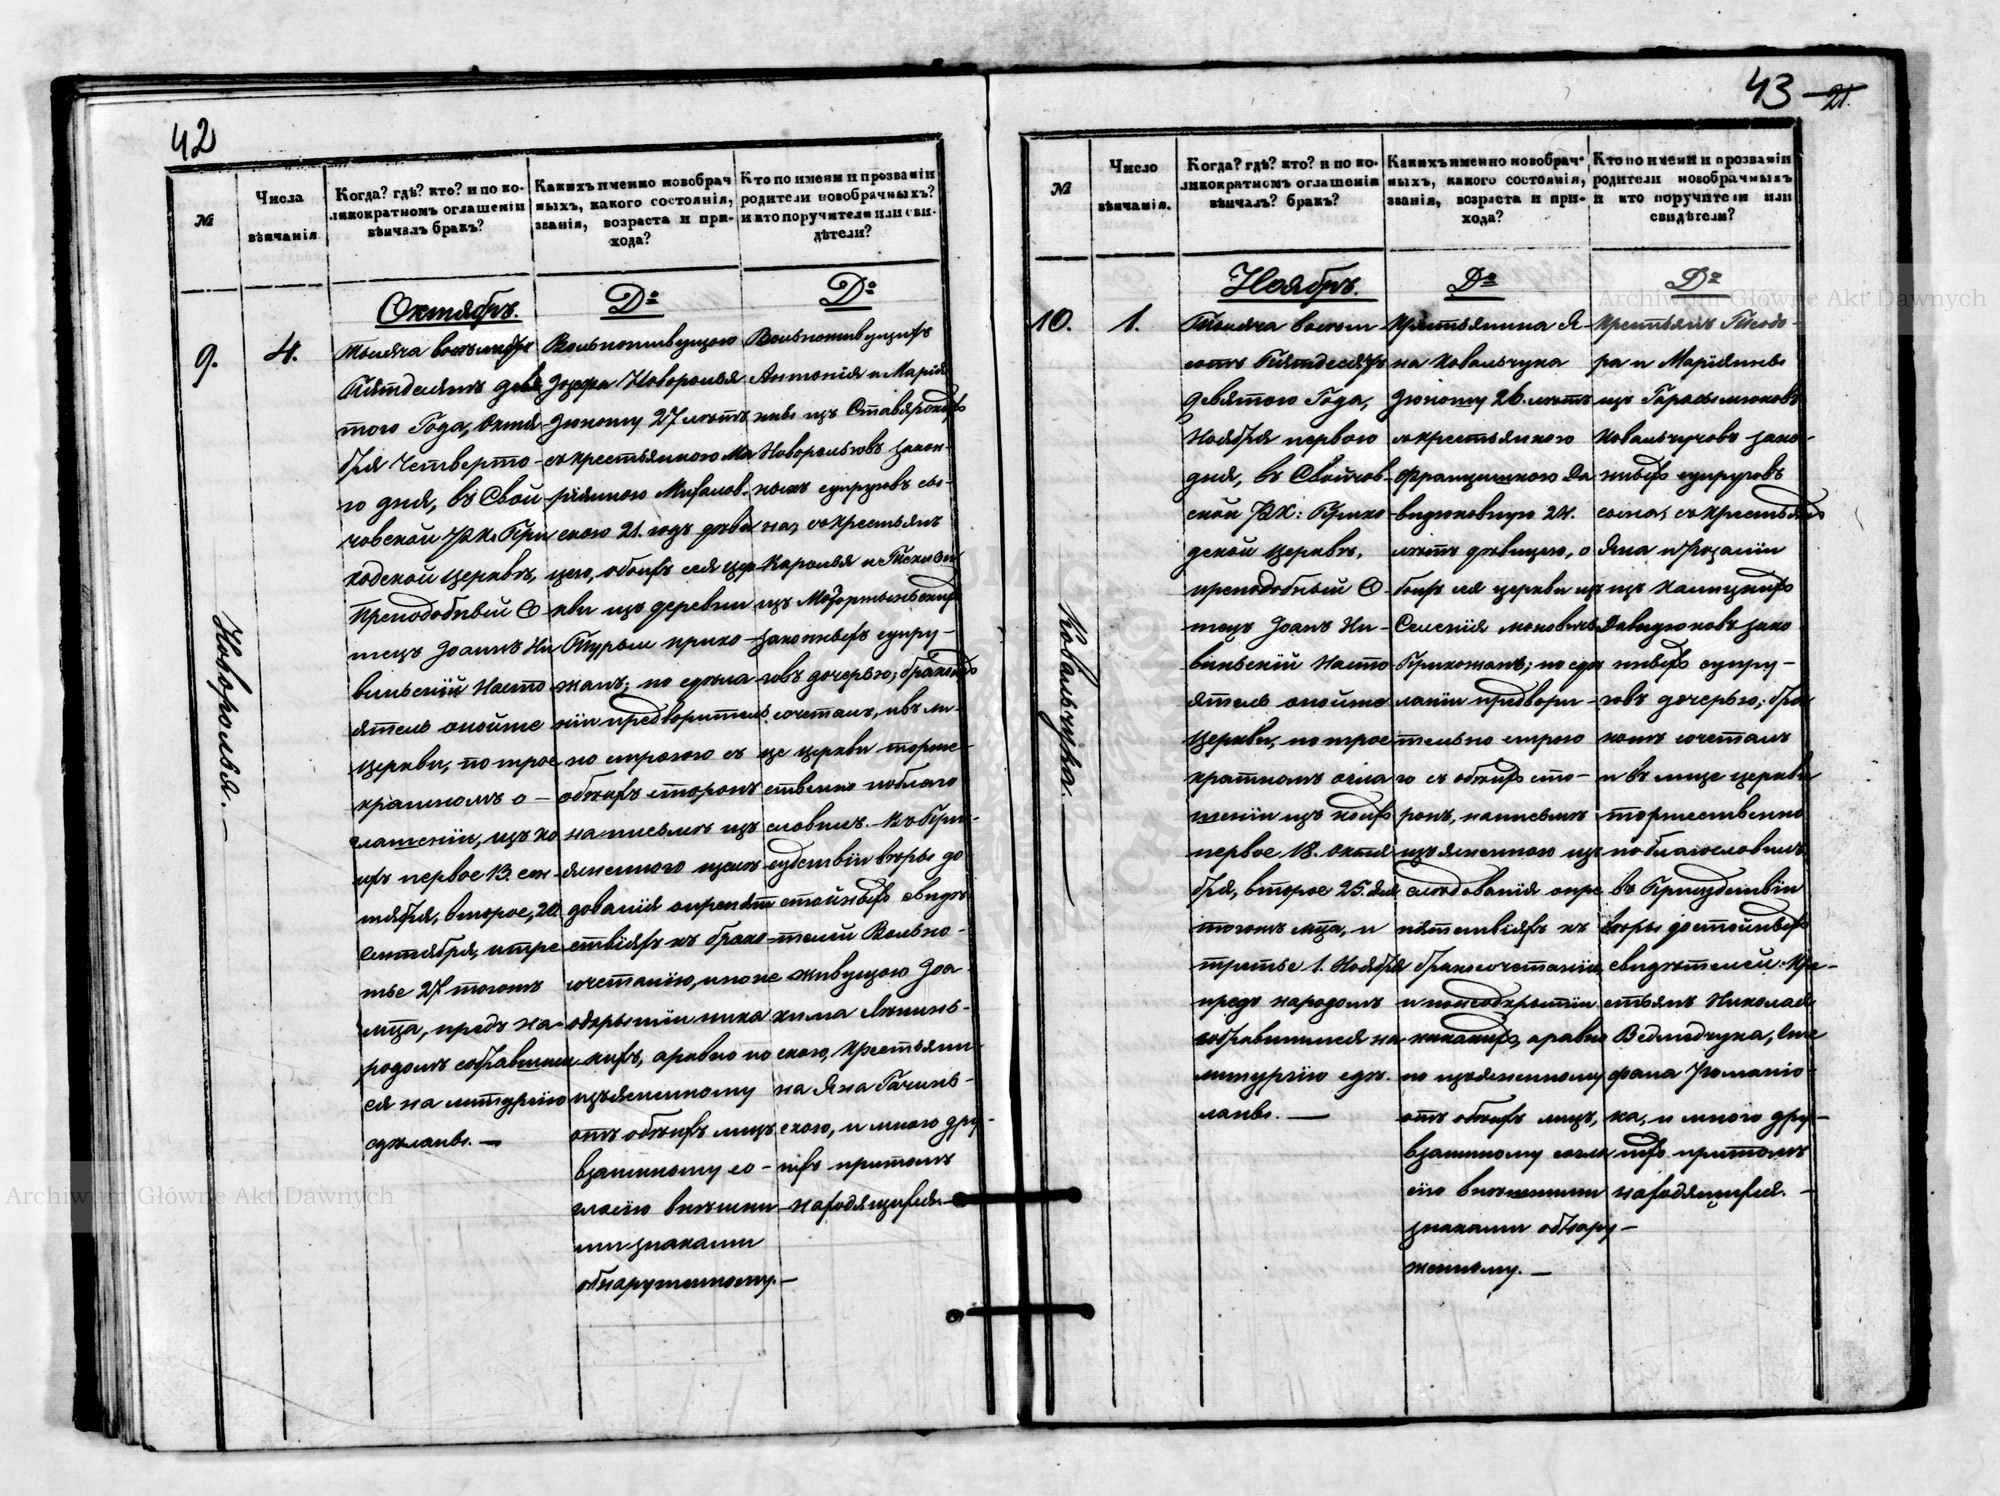 42
№
Числа
вѣнчанія
Когда? гдѣ? кто? и по ко-
ликократномъ оглашеніи
вѣнчалъ бракъ?
Какихъ именно новобрач
ныхъ, какого состоянія,
званія, возраста и при-
хода?
Кто по имени и прозваніи
родители новобрачныхъ?
и кто поручители или сви-
дѣтели?
9.
4.
Новороля.—
Октябрь.
Тысяча восемьсотъ
Пятдесятъ девя
того Года, Октя
бря Четверто-
го дня, въ Свой
човской РК. При
ходской церквѣ,
Преподобный О
тецъ Іоаннъ
Насто
ятель онойже
церкви, по трое
кратномъ о-
глашеніи, изъ ко
ихъ первое 13. сен-
тября, второе, 20.
Сентября, и тре
тье 27 тогожъ
мца, предъ на-
родомъ собравшим
ся на литургію
сдѣланы.—
До
Вольноживущого
Іозефа Новороля
Юношу 27 лѣтъ
съ крестьянкою Ма
ріянною
скою 21. годъ дѣви
цею, обоихъ сея цер
кви изъ деревни
Туры прихо-
жанъ; по сдѣла
ніи предварител
но строгого съ
обѣихъ сторонъ
на письмѣ изъ
ясненного
дованія о препят
ствіяхъ къ брако
сочетанію, и по не
открытіи ника
кихъ, а равно по
изъясненному
отъ обѣихъ лицъ
взаимному со-
гласію внѣшни
ми знаками
обнаруженному.—
До
Вольноживущихъ
Антонія и Марія
нны изъ
Новоролевъ закон-
ныхъ супруговъ сы-
на, съ крестьянъ
Кароля и Теклы
изъ
законныхъ супру-
говъ дочерью; бракомъ
сочеталъ, и въ ли-
це церкви торже-
ственно поблаго
словилъ.— Въ При-
судствіи вѣры до
стойныхъ свидѣ
телей Вольно-
живущого Іоа-
кима
ского, Крестьяни-
на Яна
ского, и много дру-
гихъ притомъ
находящихся.—
43
21.
№
Число
вѣнчанія.
Когда? гдѣ? кто? и по ко-
ликократномъ оглашеніи
вѣнчалъ? бракъ?
Какихъ именно новобрач-
ныхъ, какого состоянія,
званія, возраста и при-
хода?
Кто по имени и прозваніи
родители новобрачныхъ
и кто поручители или
свидѣтели?
10.
1.
Ковальчука.—
Ноябрь.
Тысяча восем
сотъ Пятдесятъ
девятого Года,
Ноября первого
дня, въ Свойчов
ской РК: Прихо
дской церквѣ,
преподобный О-
тецъ Іоанъ
Насто
ятель онойже
Церкви, по трое
кратномъ огла
шеніи изъ коихъ
первое 18. октя
бря, второе 25. дня
тогожъ мца, и
третье 1. Ноября
предъ народомъ
собравшимся на
литургію сдѣ
ланы.—
До
Крестьянина Я-
на Ковальчука
Юношу 26. лѣтъ
съ крестьянкою
Францишкою Да
видюковную 24.
лѣтъ дѣвицею, о
боихъ сея церкви изъ
Селенія
Прихожанъ; по сдѣ
ланіи предвари-
тельно строго
го съ обѣихъ сто-
ронъ, на письмѣ
изъясненного из
слѣдованія о пре
пятствіяхъ къ
бракосочетанію,
и по неоткрытіи
никакихъ, а равно
по изъясненному
отъ обѣихъ лицъ,
взаимному согла
сію внѣшними
знаками обнару-
женному.—
До
Крестьянъ Теодо-
ра и Маріянны
изъ Герасымюковъ
Ковальчуковъ зако-
нныхъ супруговъ
сына, съ крестьянъ
Яна и Розаліи
изъ
Давидюковъ зако-
нныхъ супру-
говъ дочерью; бра
комъ сочеталъ
и въ лице церкви
торжественно
поблагословилъ
въ Присудствіи
вѣры достойныхъ
свидѣтелей: Кре-
стьянъ Николая
Ведмедчука, Сте
фана Романю-
ка, и много дру-
гихъ притомъ
находящихся.—
Archiwum Główne Akt Dawnych
Archiwum Główne Akt Dawnych